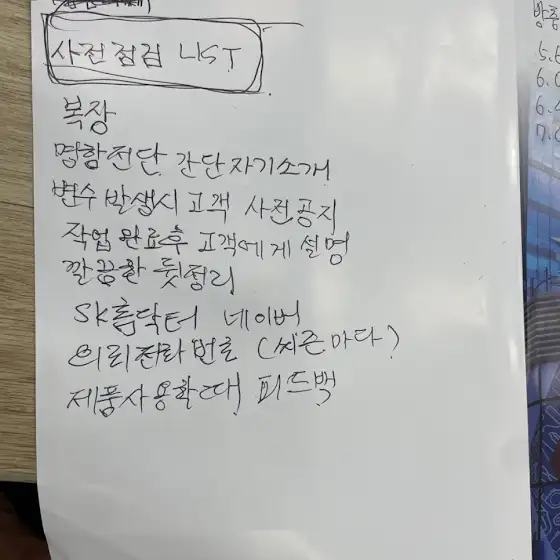 사전점검 LIST
복장
명함전단 간단자기소개
변수 발생시 고객 사전공지
작업완료후 고객에게 설명
깔끔한 뒷정리
SK홈닥터 네이버
의뢰전화번호 (씨즌마다)
제품사용할때 피드백